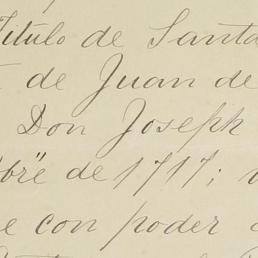 Titulo de Santa
de Juan de
Don Joseph
bre de 1717;
e con poder